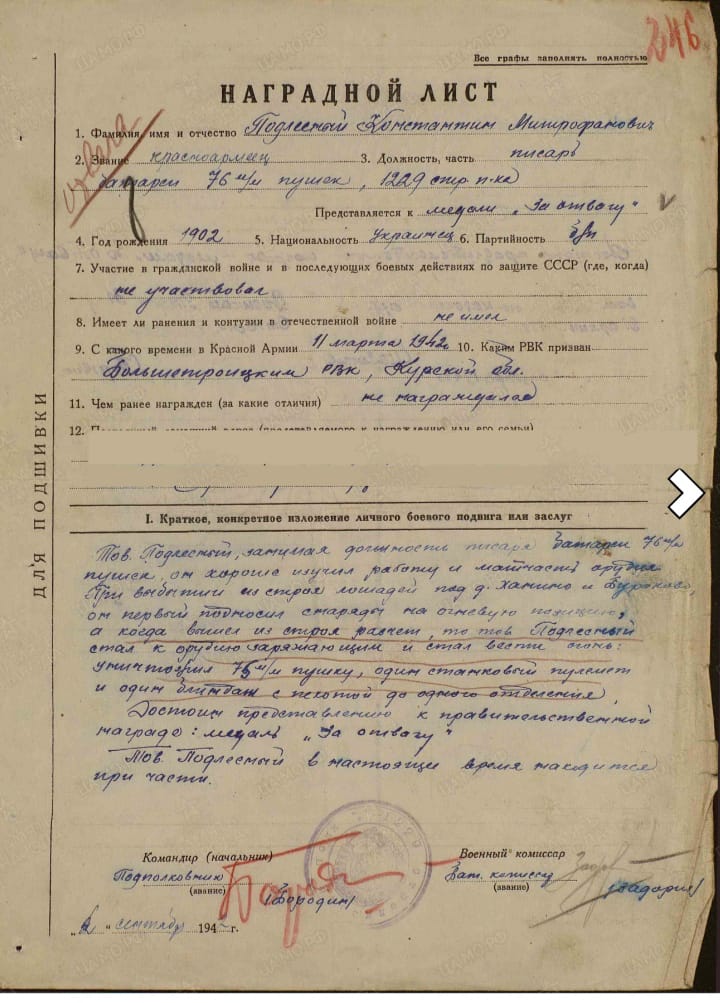 246
Все графы заполнять полностью
НАГРАДНОЙ ЛИСТ
1. Фамилия, имя и отчество Подлесный Константин Митрофанович
2. Звание красноармеец 3. Должность, часть писарь
батареи 76 м/м пушек, 1229 стр. п-ка
Представляется к медали „За отвагу"
4. Год рождения 1902 5. Национальность Украинец 6. Партийность б/п
7. Участие в гражданской войне и в последующих боевых действиях по защите СССР (где, когда)
не участвовал
8. Имеет ли ранения и контузии в отечественной войне не имел
9. С какого времени в Красной Армии 11 марта 1942 10. Каким РВК призван
Большетроицким РВК, Курской обл.
11. Чем ранее награжден (за какие отличия) не награждался
12.
ДЛЯ ПОДШИВКИ
I. Краткое, конкретное изложение личного боевого подвига или заслуг
Тов. Подлесный, занимая должность писаря батареи 76 м/м
пушек, он хорошо изучил работу и матчасть орудия
При выбытии из строя лошадей под д. Ханино и
он первый подносил снаряды на огневую позицию,
а когда вышел из строя расчет, то тов Подлесный
стал к орудию заряжающим и стал вести огонь:
уничтожил 75 м/м пушку, один станковый пулемет
и один блиндаж с пехотой до одного отделения,
Достоин представлению к правительственной
награде: медаль „За отвагу"
Тов. Подлесный в настоящее время находится
при части.
Командир (начальник) Военный комиссар
Подполковник Бат. комиссар
(звание) (звание)
(Бородин)
" сентябрь 194 г.